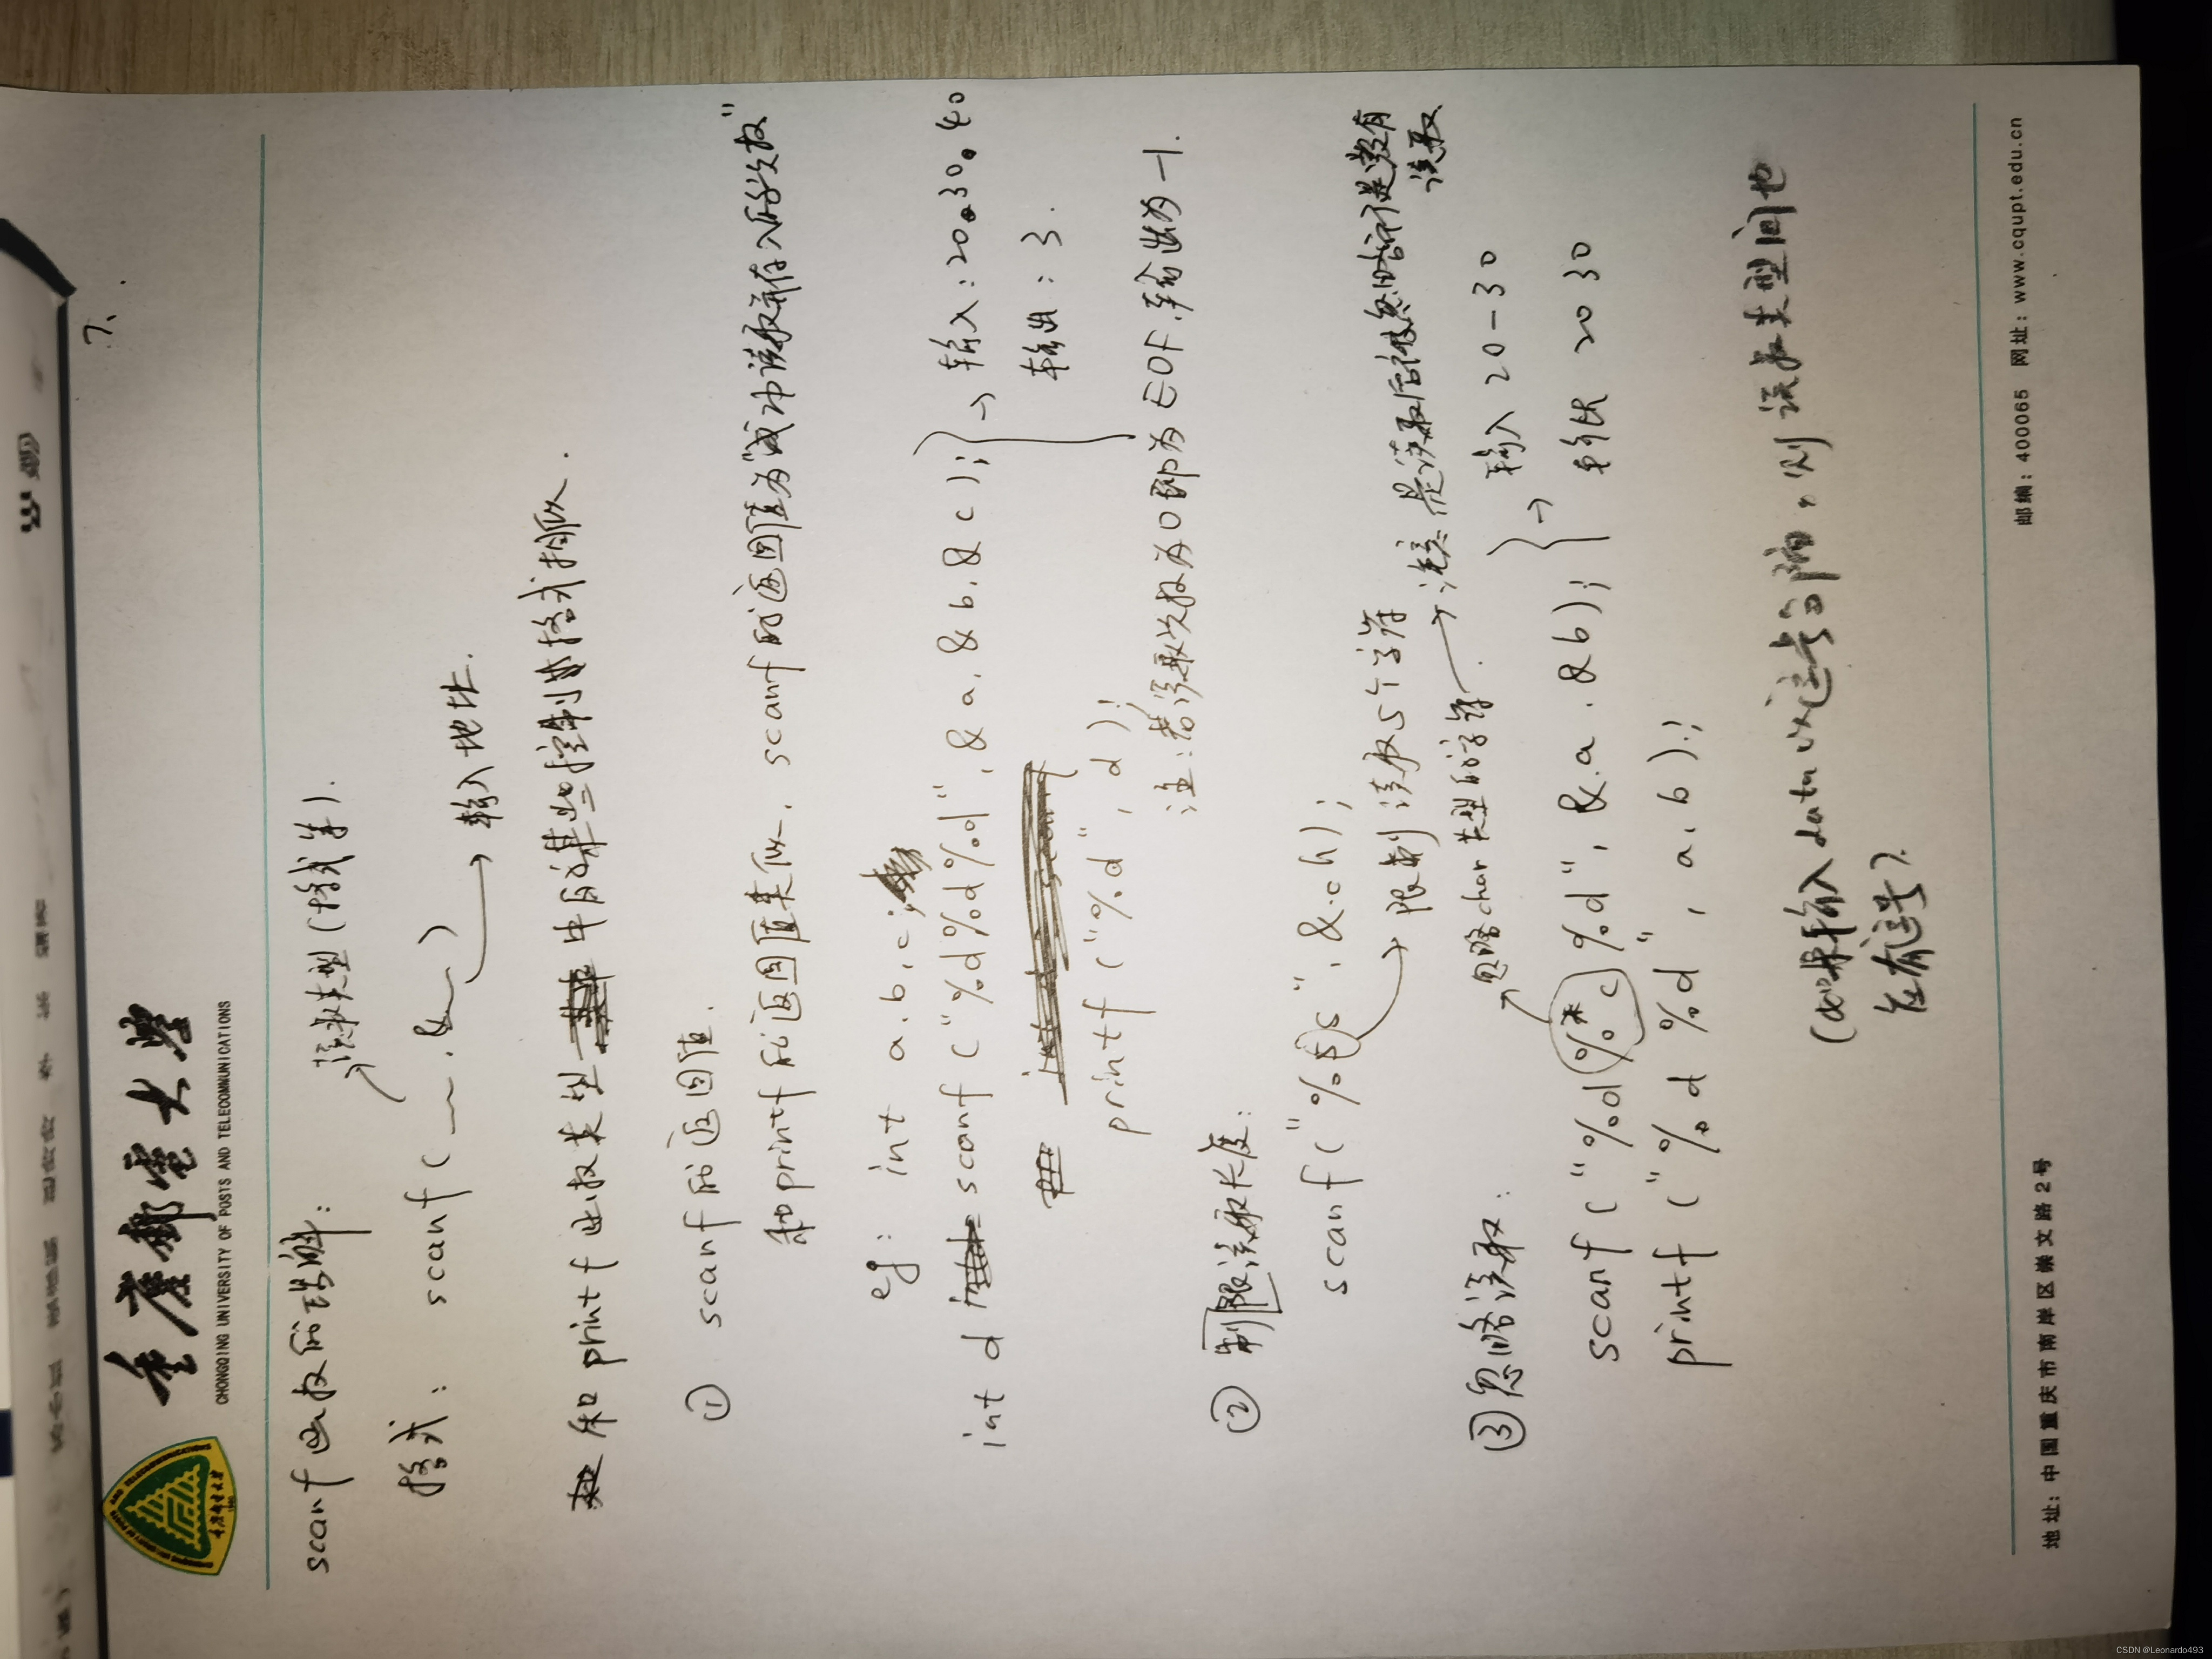 7.
重庆邮电大学
CHONGQING UNIVERSITY OF POSTS AND TELECOMMUNICATIONS
scanf函数的理解:
读取类型(格式等).
格式: scanf( , & )
→ 输入地址.
和printf函数类型 中的某些控制 格式相似.
① scanf的返回值.
和printf的返回值类似, scanf的返回值为"成功读取并存入的次数"
eg: int a,b,c;
int d = scanf("%d%d%d",&a,&b,&c); → 输入:20,30,40
输出: 3.
printf("%d",d);
注:若读取次数为0即为EOF,输出为-1.
② 限制读取长度:
scanf("%5s",&ch);
→ 限制读取5个字符
③ 忽略读取:
忽略char类型的字符 → 注意:是读取后被忽略而不是没有
读取
scanf("%d%*c%d",&a,&b); → 输入 20-30
printf("%d %d",a,b); 输出 20 30
(如果输入data以逗号分隔,则读取类型间也
应有逗号).
地址:中国重庆市南岸区崇文路2号 邮编:400065 网址:www.cqupt.edu.cn
CSDN @Leonardo493